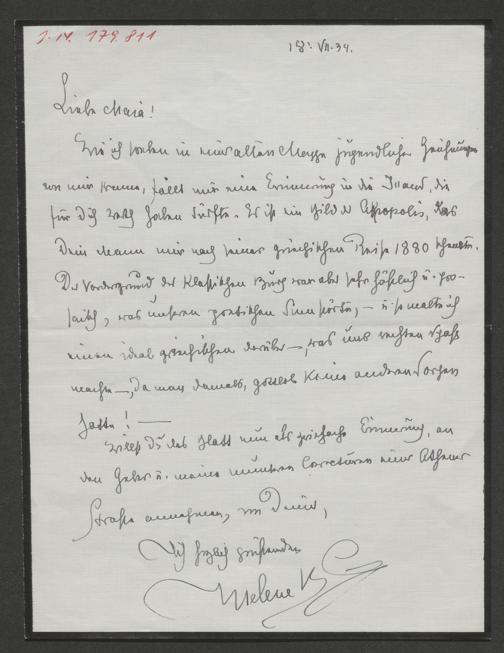 J.N. 179.811
18. VII. 34.
Liebe Maia!
Wie ich soeben in einer alten Mappe jugendlicher Zeichnungen
von mir krame, fällt mir eine Erinnerung in die Hand, die
für dich Werth haben dürfte. Es ist ein Bild der Akropolis, das
Dein Mann mir nach seiner griechischen Reise 1880 schenkte.
Der Vordergrund der klassischen Burg war aber sehr häßlich u. pro-
saisch, was unseren poetischen Sinn störte, – u. so malte ich
einen ideal griechischen darüber –, was uns rechten Spaß
machte –, da man damals, gottlob keine anderen Sorgen
hatte! —
Willst Du das Blatt nun als zweifache Erinnerung, an
den Geber u. meine muntere Correctur einer Athener
Straße annehmen, von Deiner,
Dich herzlich grüßenden
Helene